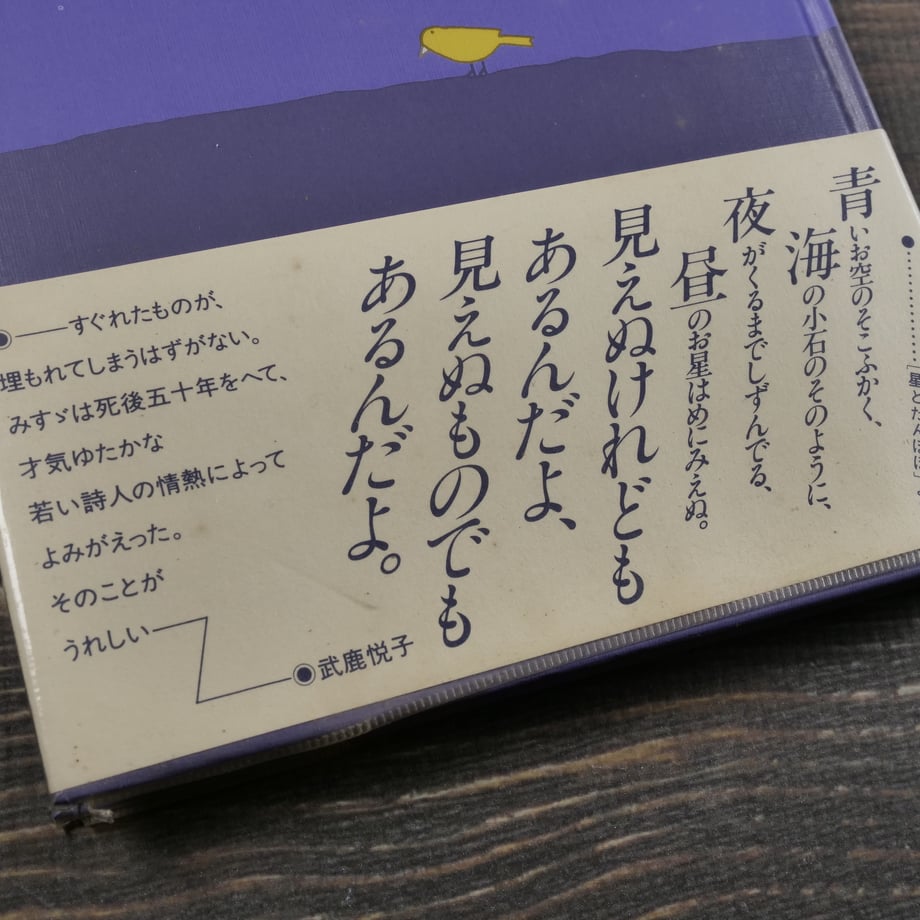 「星とたんぽぽ」
青いお空のそこふかく、
海の小石のそのように、
夜がくるまでしずんでる、
昼のお星はめにみえぬ。
見えぬけれども
あるんだよ、
見えぬものでも
あるんだよ。
すぐれたものが、
埋もれてしまうはずがない。
みすゞは死後五十年をへて、
才気ゆたかな
若い詩人の情熱によって
よみがえった。
そのことが
うれしい
武鹿悦子